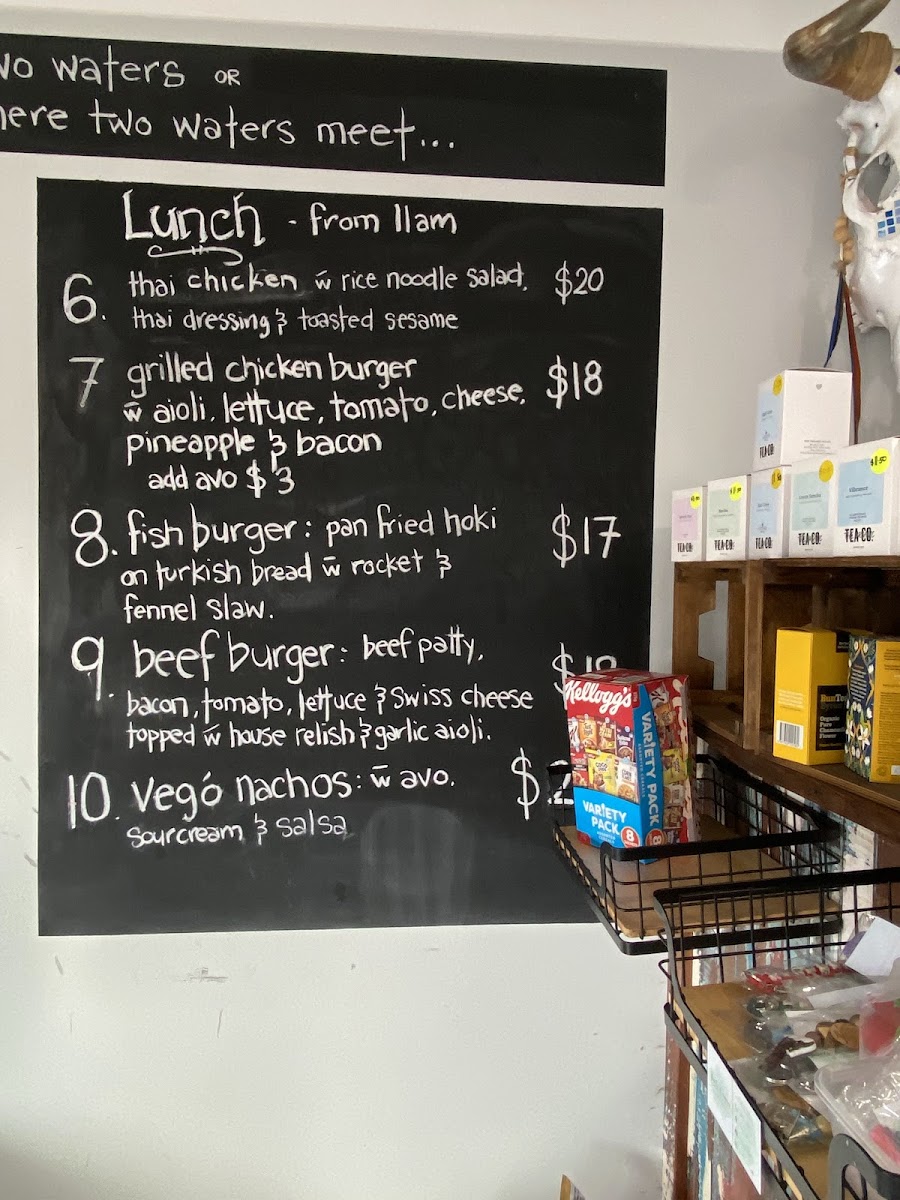 waters OR
two waters meet...
Lunch - from 11am
6. thai chicken w̄ rice noodle salad, $20
thai dressing & toasted sesame
7 grilled chicken burger $18
w̄ aioli, lettuce, tomato, cheese,
pineapple & bacon
add avo $3
8. fish burger: pan fried hoki $17
on turkish bread w̄ rocket &
fennel slaw.
9. beef burger: beef patty,
bacon, tomato, lettuce & Swiss cheese
topped w̄ house relish & garlic aioli.
10. vegó nachos: w̄ avo, $
sour cream & salsa
TEA CO.
TEA CO.
TEA CO.
TEA CO.
TEA CO.
TEA CO.
$11.50
Kellogg's
VARIETY PACK
VARIETY
PACK
8
8
Organic
Pure